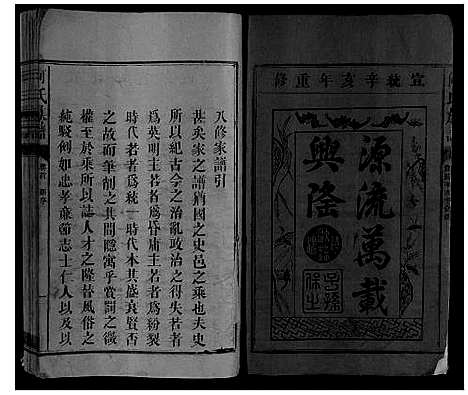 宣統辛亥年重修
源流萬載
興隆
子孫
保之
八修家譜引
甚矣家之譜猶國之史邑之乘也夫史
所以紀古今之治亂政治之得失若者
爲英明主若者爲昏庸主若者爲紛裂
時代若者爲統一時代本其盛衰賢否
之故而筆削之其間隱寓乎賞罰之微
權至於乘所以誌人才之隆替風俗之
純駁例如忠孝廉節志士仁人以及以
氏族譜
卷首